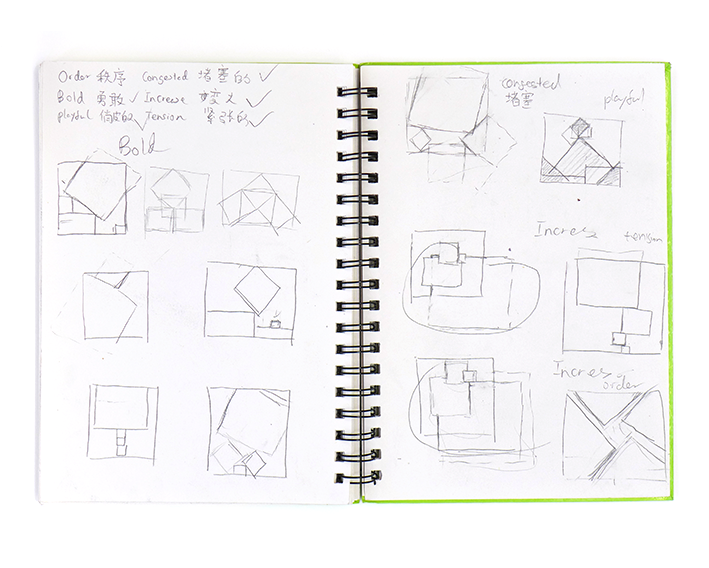 Order 秩序 Congested 堵塞的 ✓
Bold 勇敢 ✓ Increase 变大 ✓
playful 俏皮的 ✓ Tension 紧张的 ✓
Bold
congested
堵塞
playful
Increse
tension
Increse
order